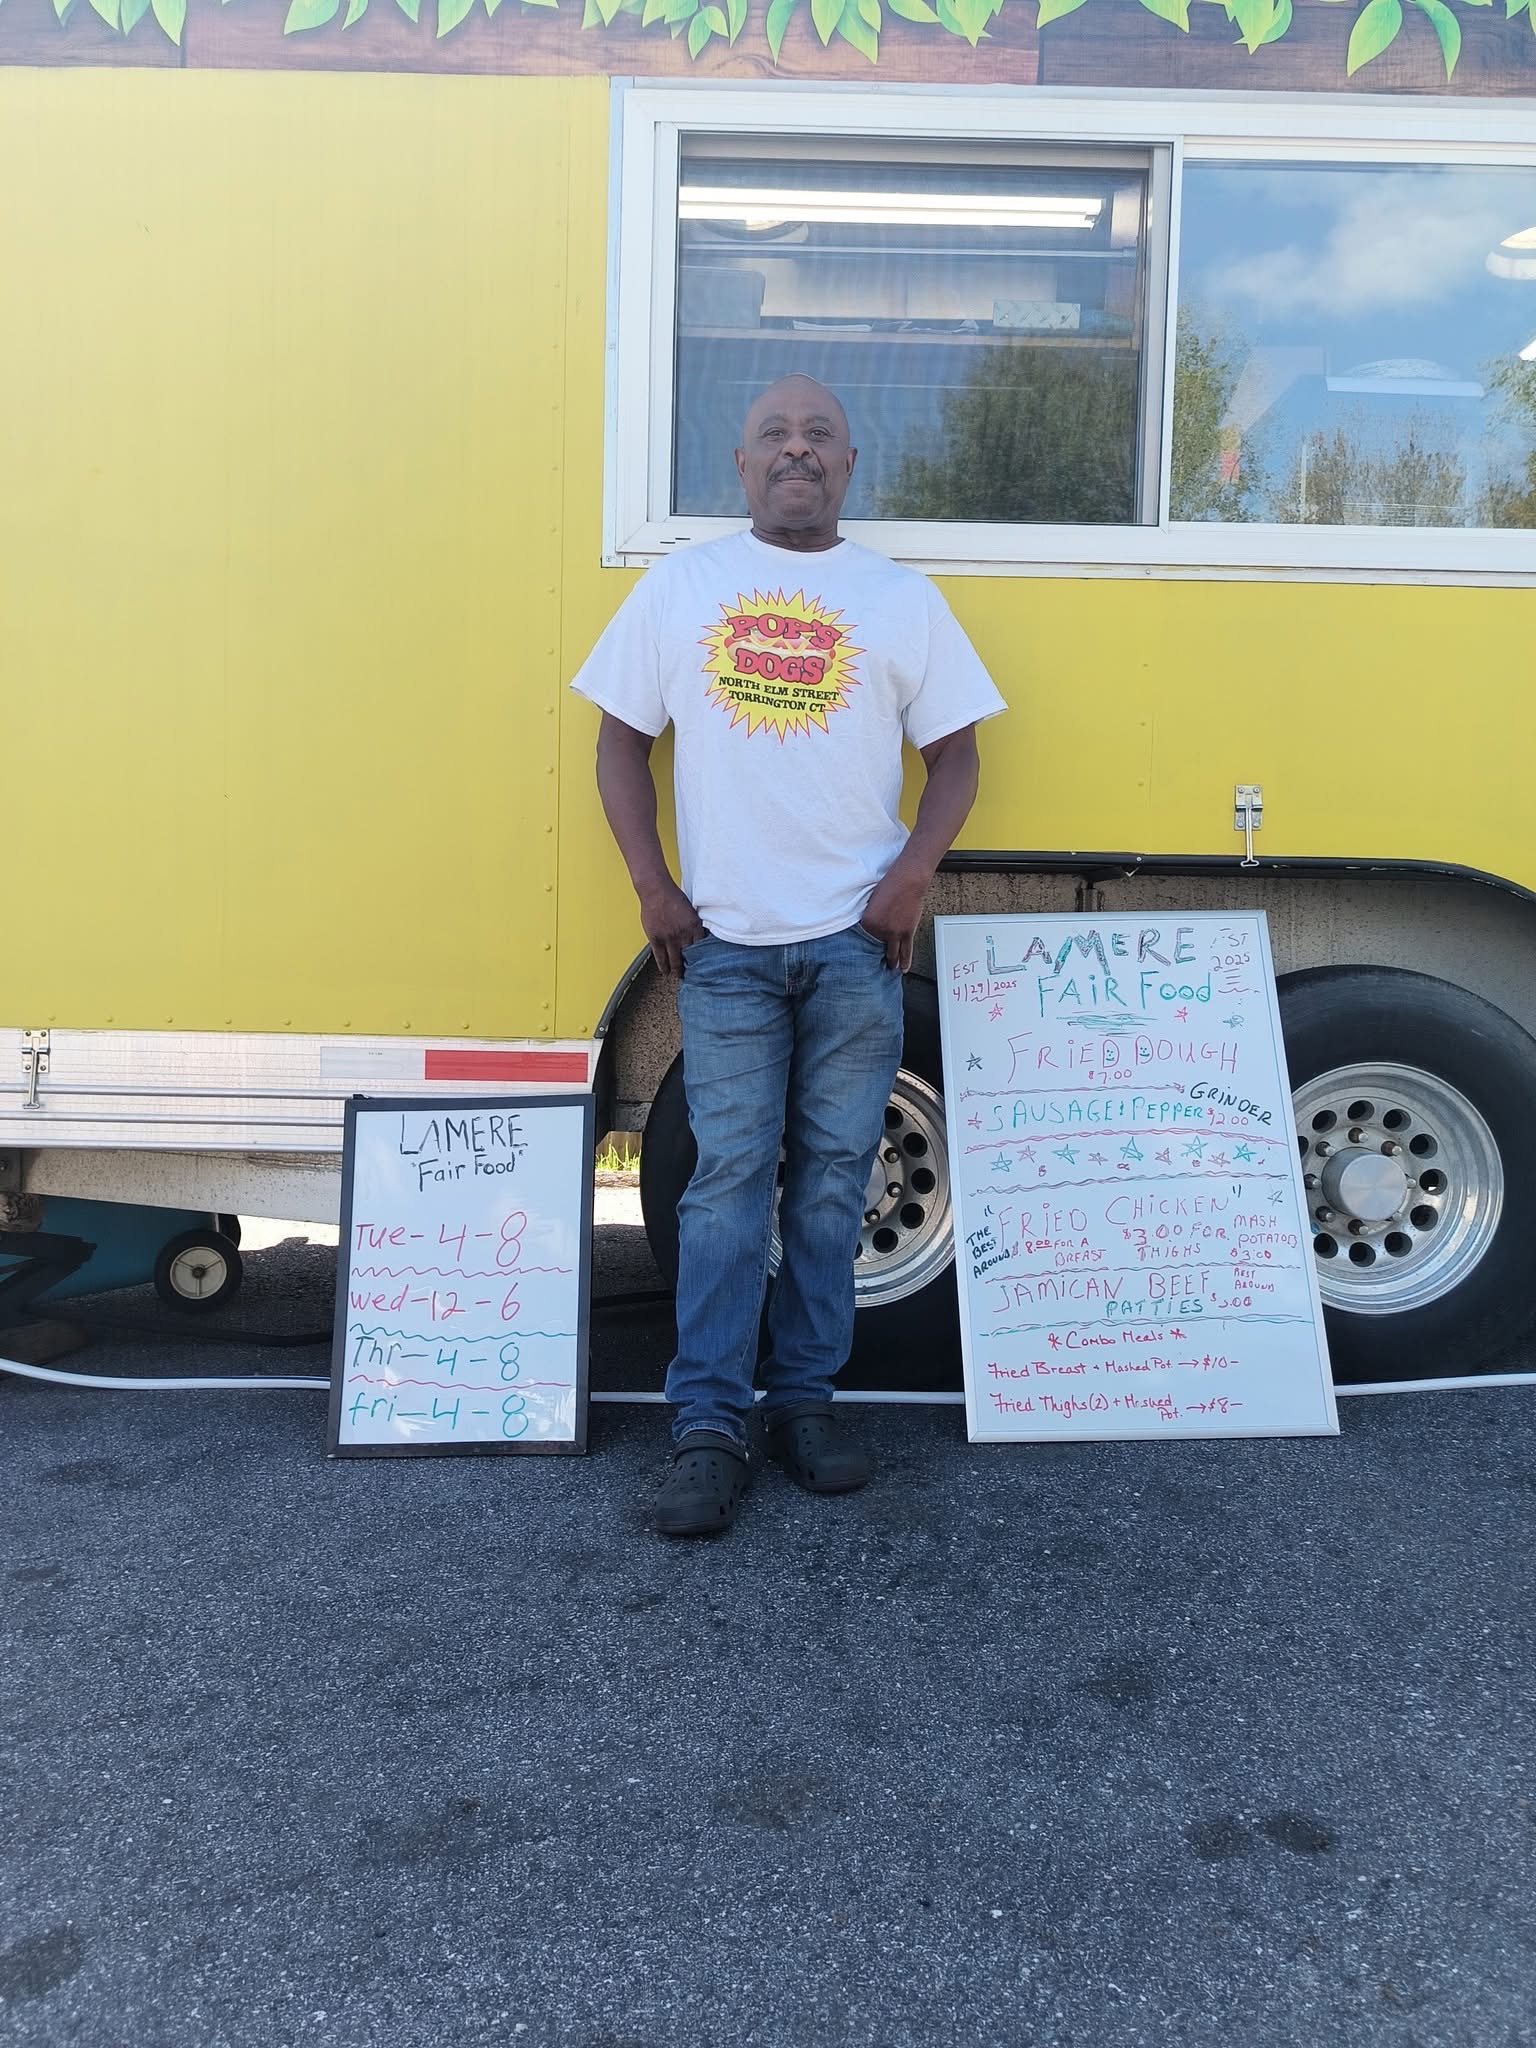 POP'S
DOGS
NORTH ELM STREET
TORRINGTON CT
LAMERE
"Fair Food"
Tue-4-8
Wed-12-6
Thr-4-8
fri-4-8
EST
4/29/2025
LAMERE
EST
2025
FAiR Food
FRiED DOUGH
$7.00
SAUSAGE & PEPPER GRiNDER
$12.00
"FRiED CHiCKEN"
THE
BEST
AROUND
$8.00 FOR A
BREAST
$3.00 FOR
THIGHS
MASH
POTATOES
$3.00
JAMiCAN BEEF
PATTiES
BEST
AROUND
* Combo Meals *
Fried Breast + Mashed Pot. → $10-
Fried Thighs (2) + Mashed
Pot. → $8-